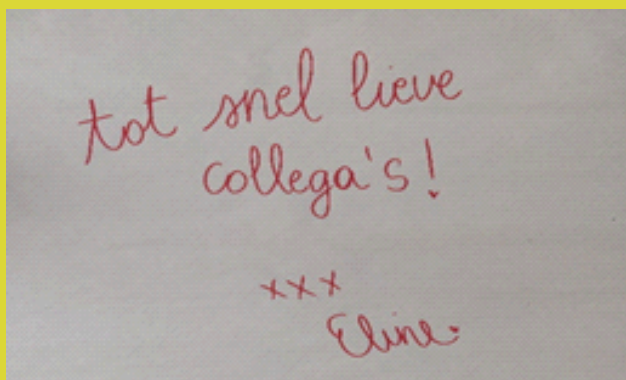 tot snel lieve
collega's!
xxx
Eline.